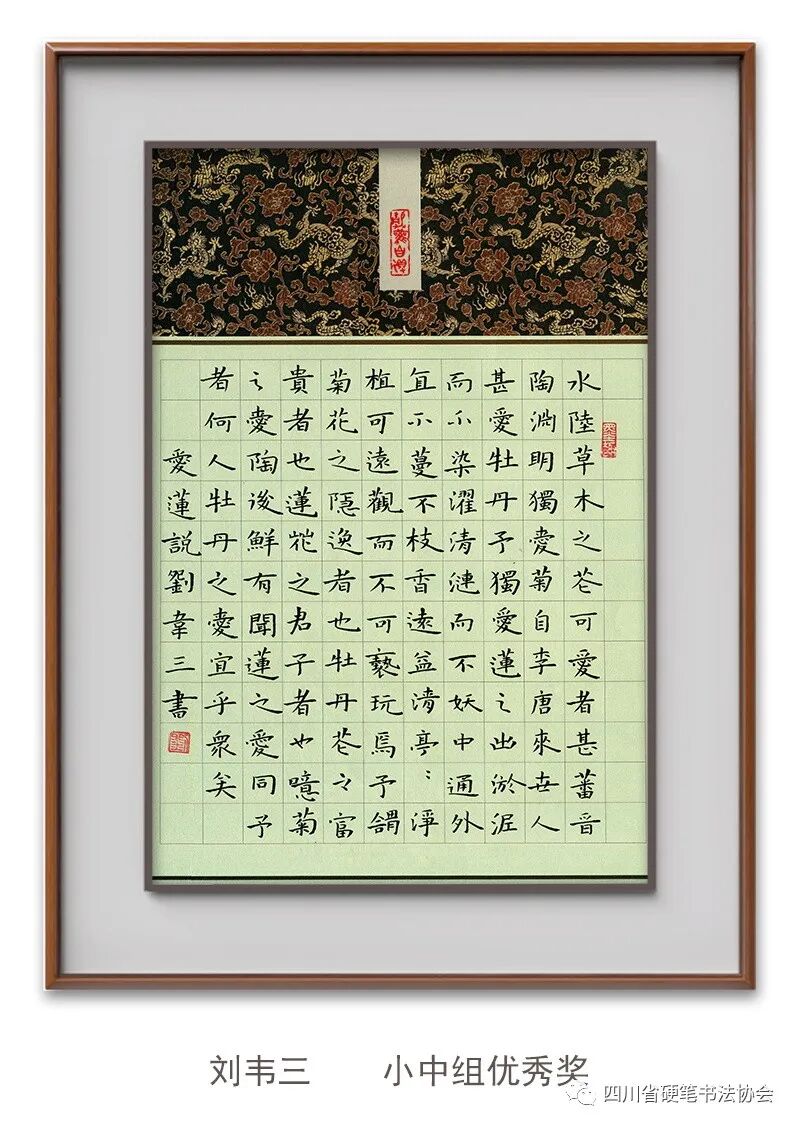 水陸草木之花可愛者甚蕃晋
陶淵明獨愛菊自李唐來世人
甚愛牡丹予獨愛蓮之出淤泥
而不染濯清漣而不妖中通外
直不蔓不枝香遠益清亭〻淨
植可遠觀而不可褻玩焉予謂
菊花之隱逸者也牡丹花之富
貴者也蓮花之君子者也噫菊
之愛陶後鮮有聞蓮之愛同予
者何人牡丹之愛宜乎衆矣
愛蓮説劉韋三書
刘韦三 小中组优秀奖
四川省硬笔书法协会